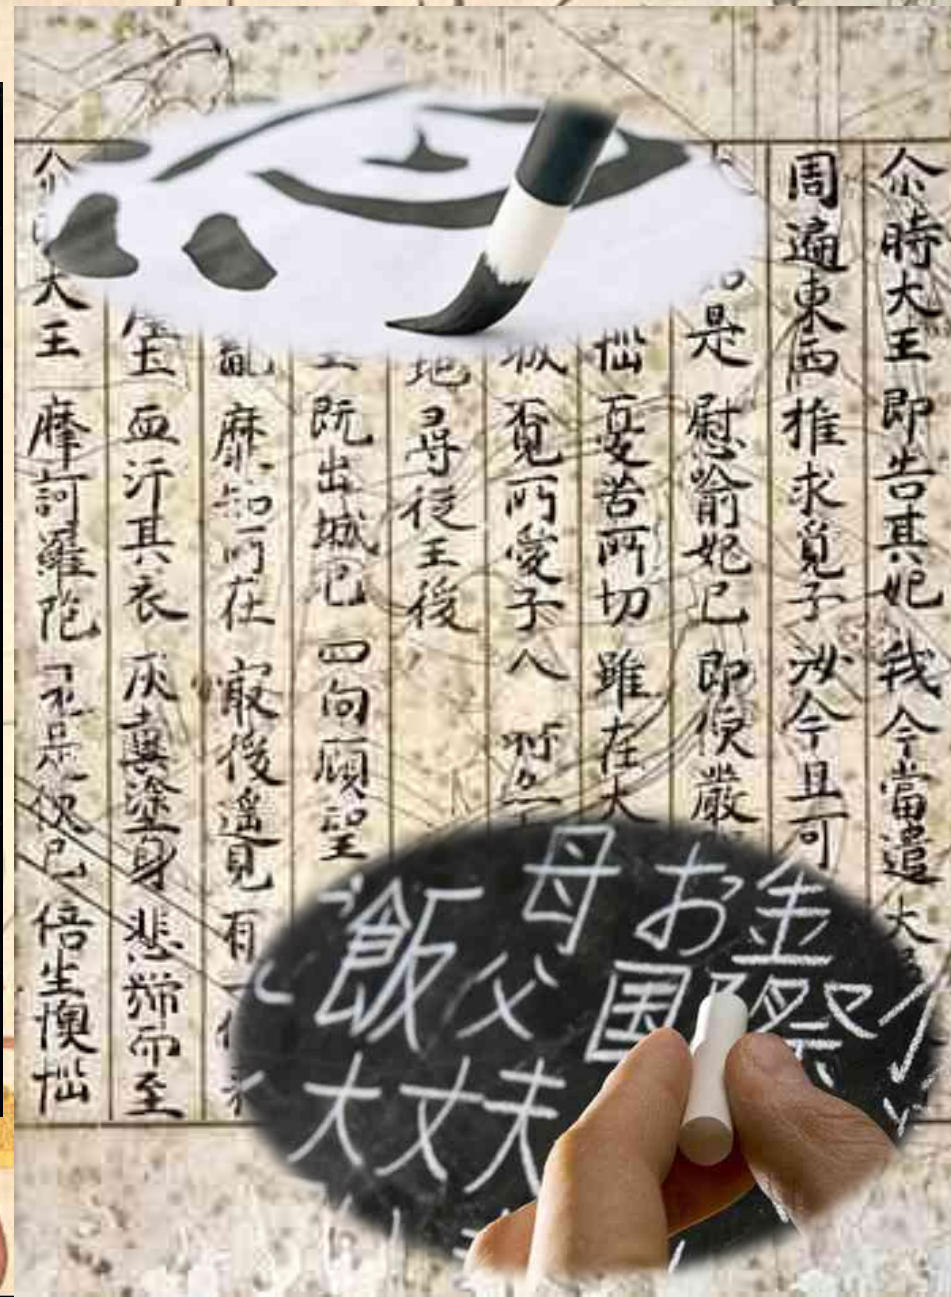 尒時大王 即告其妃 我今當遣 大
周遍東西 推求覓子 汝今且可
是 慰喻妃已 即便嚴
惱 憂苦所切 雖在大
覓所愛子
地 尋從王後
既出城已 四向顧望
亂 靡知所在 最後遙見 有
塵土 血汙其衣 灰糞塗身 悲號而至
大王 摩訶羅陀 見是使已 倍生懊惱
母 お金
飯 父 国際
大丈夫